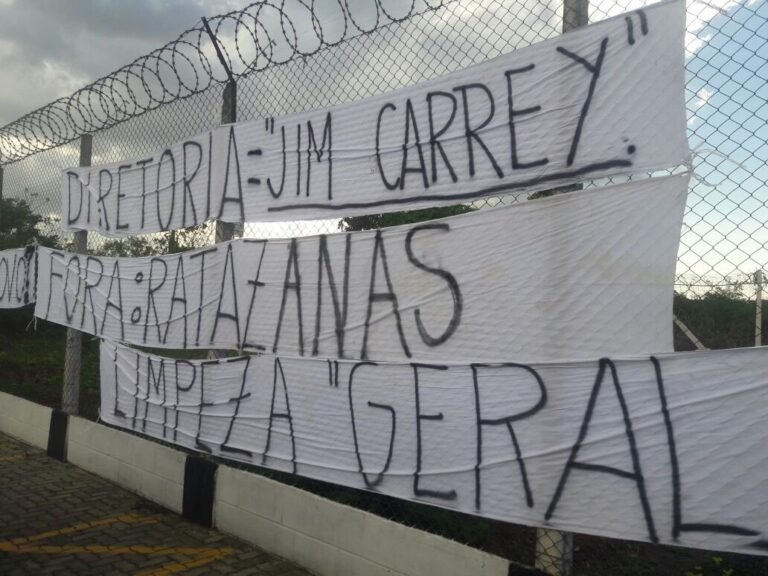 DIRETORIA="JIM CARREY".
FORA:RATAZANAS
LIMPEZA "GERAL